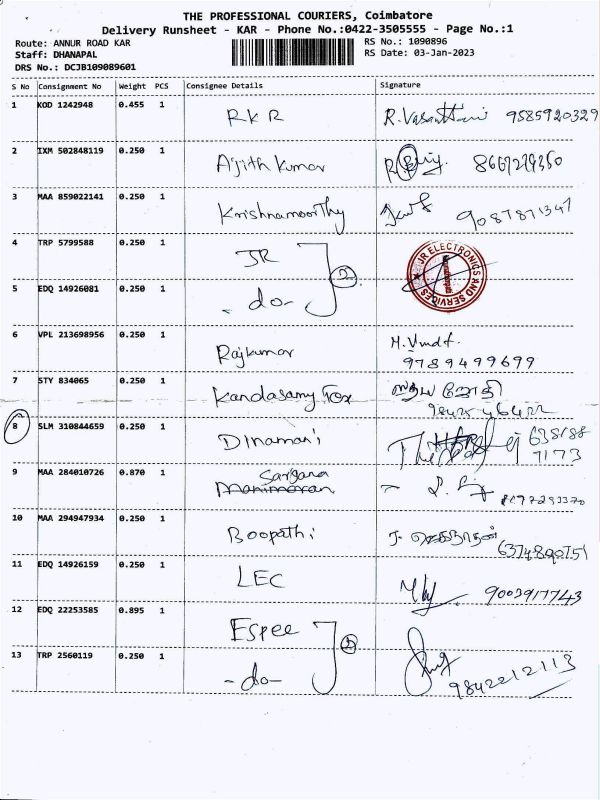 THE PROFESSIONAL COURIERS, Coimbatore
Delivery Runsheet - KAR - Phone No.:0422-3505555 - Page No.:1
Route: ANNUR ROAD KAR
Staff: DHANAPAL
DRS No.: DCJB109089601
RS No.: 1090896
RS Date: 03-Jan-2023
S No Consignment No Weight PCS Consignee Details Signature
1 KOD 1242948 0.455 1 RKR R. Vasanthani 9585920329
2 IXM 502848119 0.250 1 Ajith Kumar
3 MAA 859022141 0.250 1 Krishnamoorthy 9087871347
4 TRP 5799588 0.250 1 JR 2
JR ELECTRONICS AND SERVICES
5 EDQ 14926081 0.250 1 - do -
6 VPL 213698956 0.250 1 Rajkumar
9789499699
7 STY 834065 0.250 1 Kandasamy Tex
8 SLM 310844659 0.250 1 Dinamani 638188
7173
9 MAA 284010726 0.870 1 Manimaran
10 MAA 294947934 0.250 1 Boopathi
11 EDQ 14926159 0.250 1 LEC 9003917743
12 EDQ 22253585 0.895 1 Espee 2
13 TRP 2560119 0.250 1 - do - 9842212113